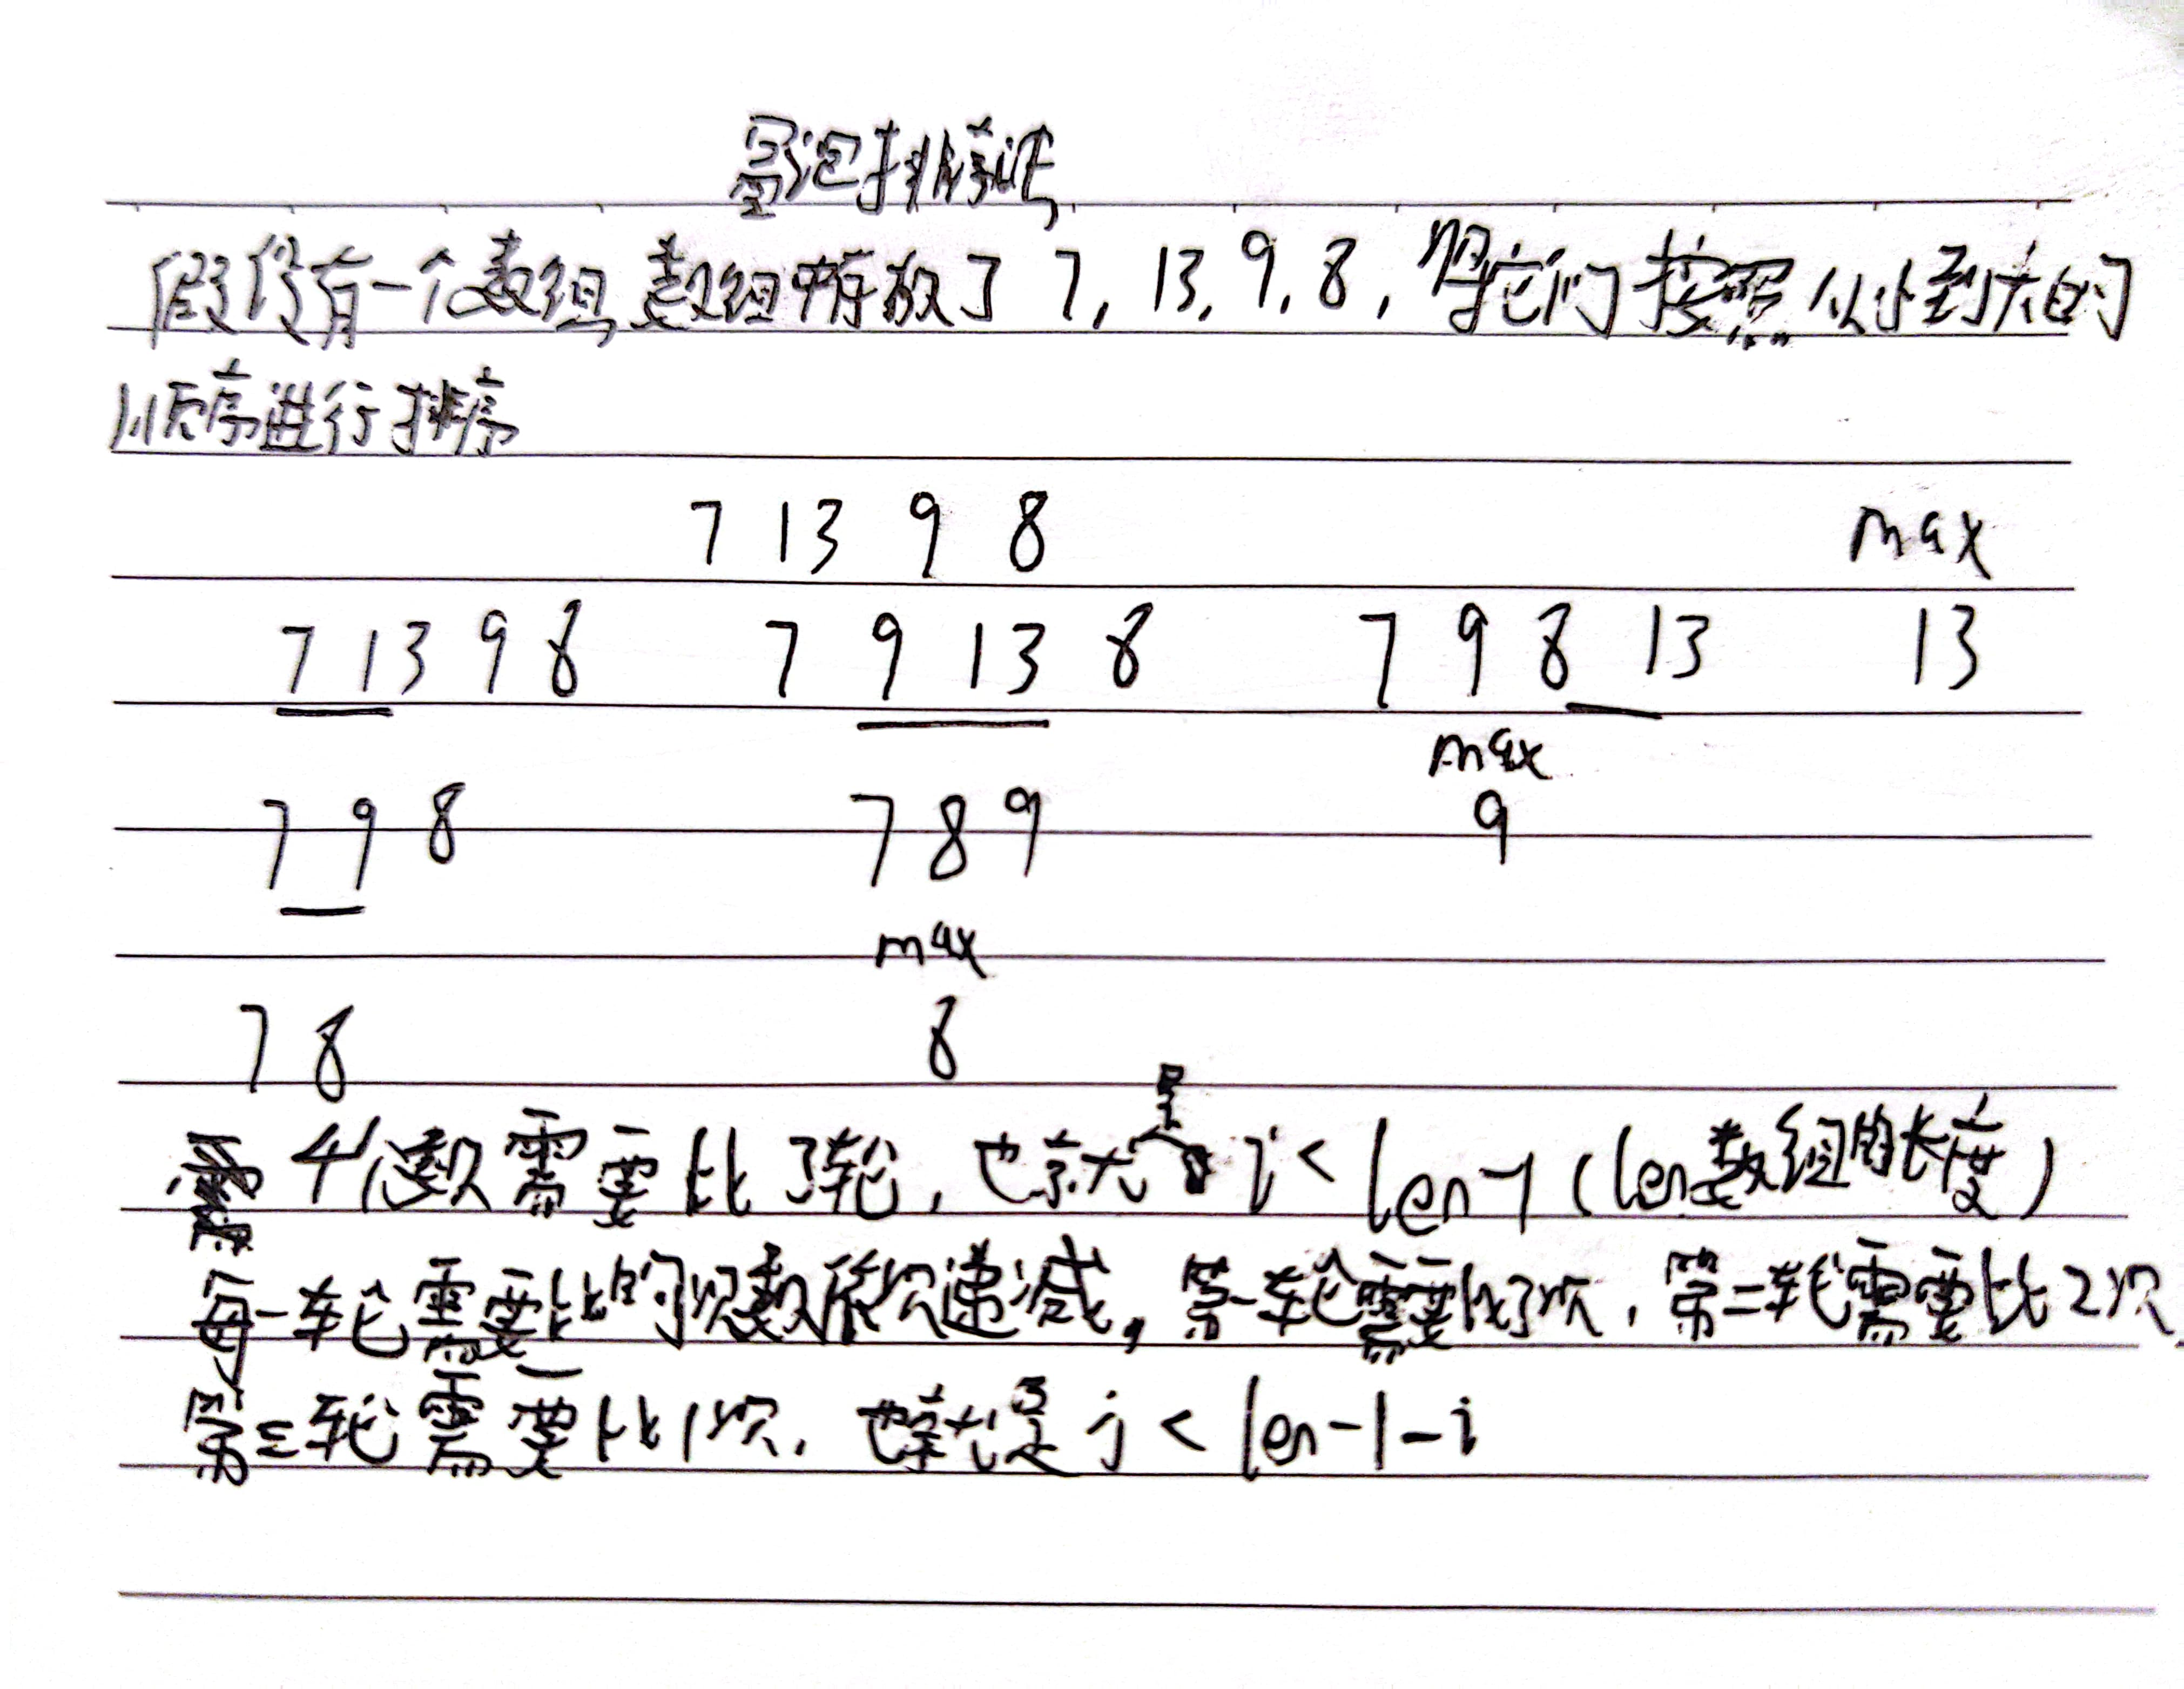 冒泡排序法
假设有一个数组,数组中存放了 7, 13, 9, 8, 将它们按照从小到大的
顺序进行排序
7 13 9 8 max
7 13 9 8 7 9 13 8 7 9 8 13 13
max
7 9 8 7 8 9 9
max
7 8 8
4个数需要比3轮, 也就是 i < len-1 (len数组的长度)
每一轮需要比的次数依次递减, 第一轮需要比3次, 第二轮需要比2次,
第三轮需要比1次, 也就是 j < len-1-i